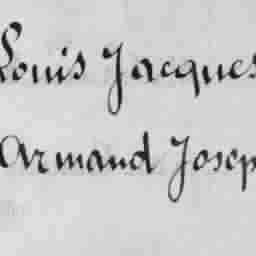 Louis Jacques
Armand Josep